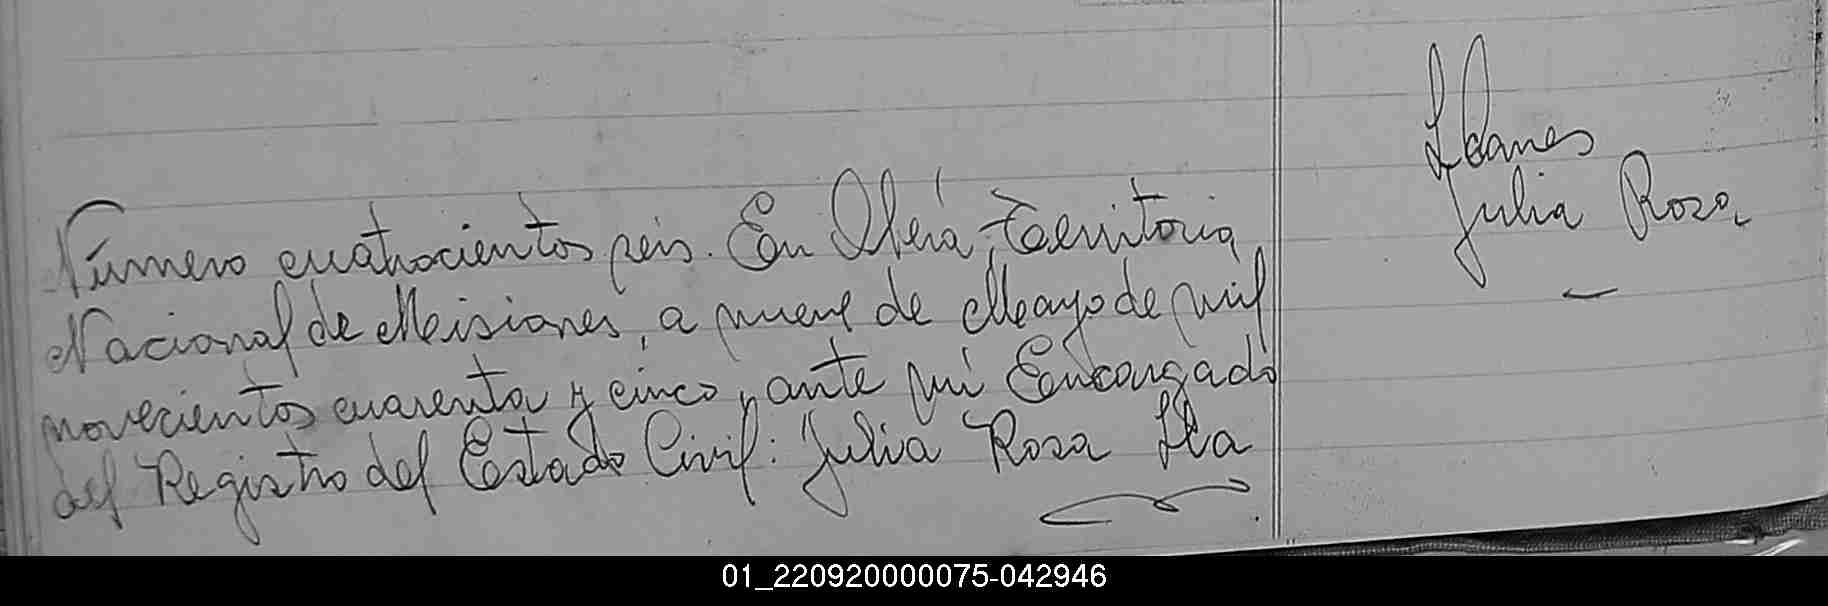 Número cuatrocientos seis. En Oberá, Territorio
Nacional de Misiones, a nueve de Mayo de mil
novecientos cuarenta y cinco, ante mí Encargado
del Registro del Estado Civil: Julia Rosa Lla
Llanes
Julia Rosa
01_220920000075-042946